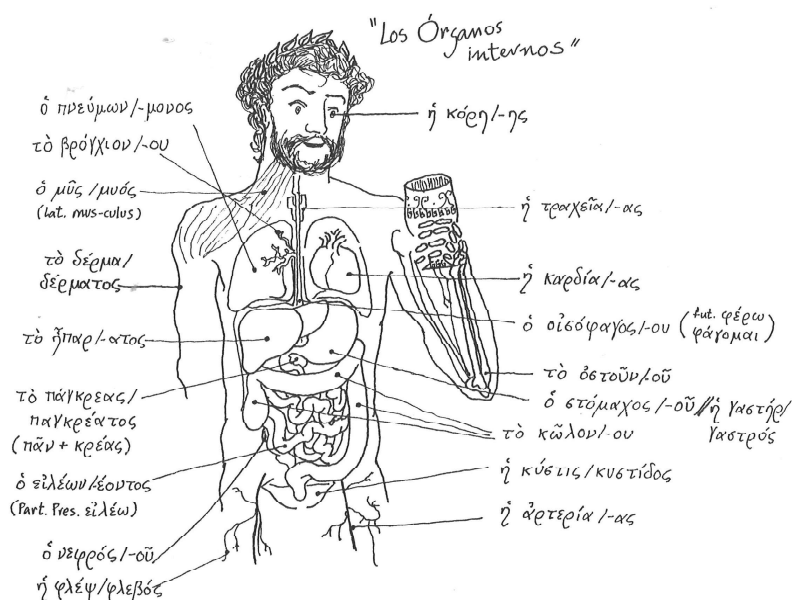 "Los Órganos
internos"
ὁ πνεύμων/-μονος
τὸ βρόγχιον/-ου
ὁ μῦς/μυός
(Lat. mus-culus)
τὸ δέρμα/
δέρματος
τὸ ἧπαρ/-ατος
τὸ πάγκρεας/
παγκρέατος
(πᾶν + κρέας)
ὁ εἰλέων/-έοντος
(Part. Pres. εἰλέω)
ὁ νεφρός/-οῦ
ἡ φλέψ/φλεβός
ἡ κόρη/-ης
ἡ τραχεῖα/-ας
ἡ καρδία/-ας
ὁ οἰσόφαγος/-ου (fut. φέρω
φάγομαι)
τὸ ὀστοῦν/-οῦ
ὁ στόμαχος/-οῦ//ἡ γαστήρ/
γαστρός
τὸ κῶλον/-ου
ἡ κύστις/κυστίδος
ἡ ἀρτερία/-ας